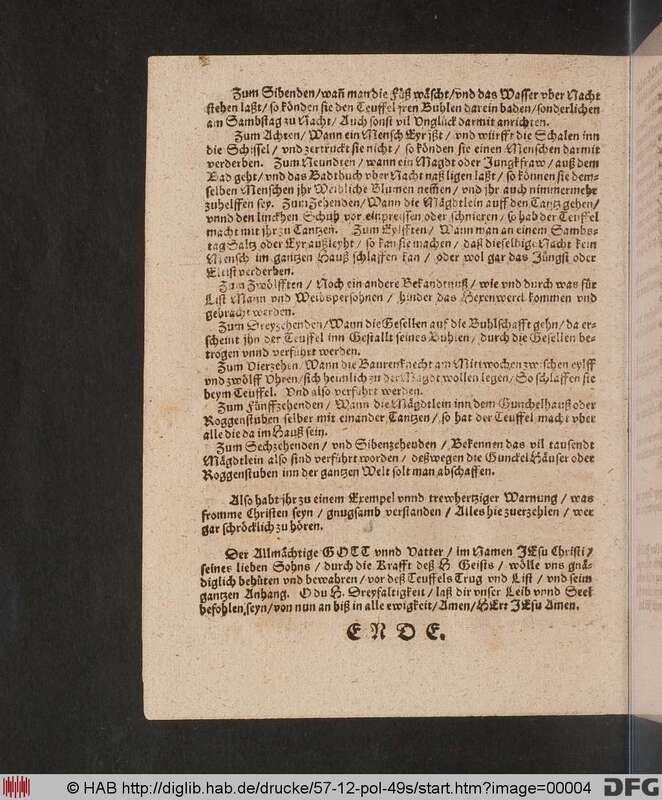 Zum Sibenden/wañ man die Füß wäscht/vnd das Wasser vber Nacht
stehen laßt/so könden sie den Teuffel jren Buhlen darein baden/sonderlichen
am Sambstag zu Nacht/Auch sonst vil Vnglück darmit anrichten.
Zum Achten/Wann ein Mensch Eyr jßt/vnd würfft die Schalen inn
die Schissel/vnd zertruckt sie nicht/so könden sie einen Menschen darmit
verderben. Zum Neundten/wann ein Magdt oder Jungkfraw/auß dem
Bad geht/vnd das Badtbuch vber Nacht naß ligen laßt/so können sie dem-
selben Menschen jhr Weibliche Blumen nem̃en/vnd jhr auch nimmermehr
zuhelffen sey. Zum Zehenden/Wann die Mägdtlein auff den Tantz gehen/
vnnd den linckhen Schuh vor einpreissen oder schnieren/so hab der Teuffel
macht mit jhr zu Tantzen. Zum Eylfften/Wann man an einem Sambs-
tag Saltz oder Eyr außleyht/so kan sie machen/daß dieselbige Nacht kein
Mensch im gantzen Hauß schlaffen kan/oder wol gar das Jüngst oder
Eltist verderben.
Zum Zwölfften/Noch ein andere Bekandtnuß/wie vnd durch was für
List Mann vnd Weibspersohnen/hinder das Hexenwerck kommen vnd
gebracht werden.
Zum Dreyzehenden/Wann die Gesellen auf die Buhlschafft gehn/da er-
scheint jhn der Teuffel inn Gestallt seines Buhlen/durch die Gesellen be-
trogen vnnd verführt werden.
Zum Vierzehen/Wann die Baurenknecht am Mittwochen zwischen eylff
vnd zwölff Vhren/sich heimlich zu der Magdt wollen legen/So schlaffen sie
beym Teuffel. Vnd also verführt werden.
Zum Fünffzehenden/Wann die Mägdtlein inn dem Gunckelhauß oder
Roggenstuben selber mit einander Tantzen/so hat der Teuffel macht vber
alle die da im Hauß sein.
Zum Sechzehenden/vnd Sibenzehenden/Bekennen das vil tausendt
Mägdtlein also sind verführt worden/deßwegen die Gunckel Häuser oder
Roggenstuben inn der gantzen Welt solt man abschaffen.
Also habt jhr zu einem Exempel vnnd trewhertziger Warnung/was
fromme Christen seyn/gnugsamb verstanden/Alles hie zuerzehlen/wer
gar schröcklich zu hören.
Der Allmächtige GOTT vnnd Vatter/im Namen JEsu Christi/
seines lieben Sohns/durch die Krafft deß H Geists/wölle vns gnä-
diglich behüten vnd bewahren/vor deß Teuffels Trug vnd List/vnd seim
gantzen Anhang. O du H. Dreyfaltigkeit/laß dir vnser Leib vnnd Seel
befohlen seyn/von nun an biß in alle ewigkeit/Amen/HErr JEsu Amen.
E N D E.
© HAB http://diglib.hab.de/drucke/57-12-pol-49s/start.htm?image=00004
DFG